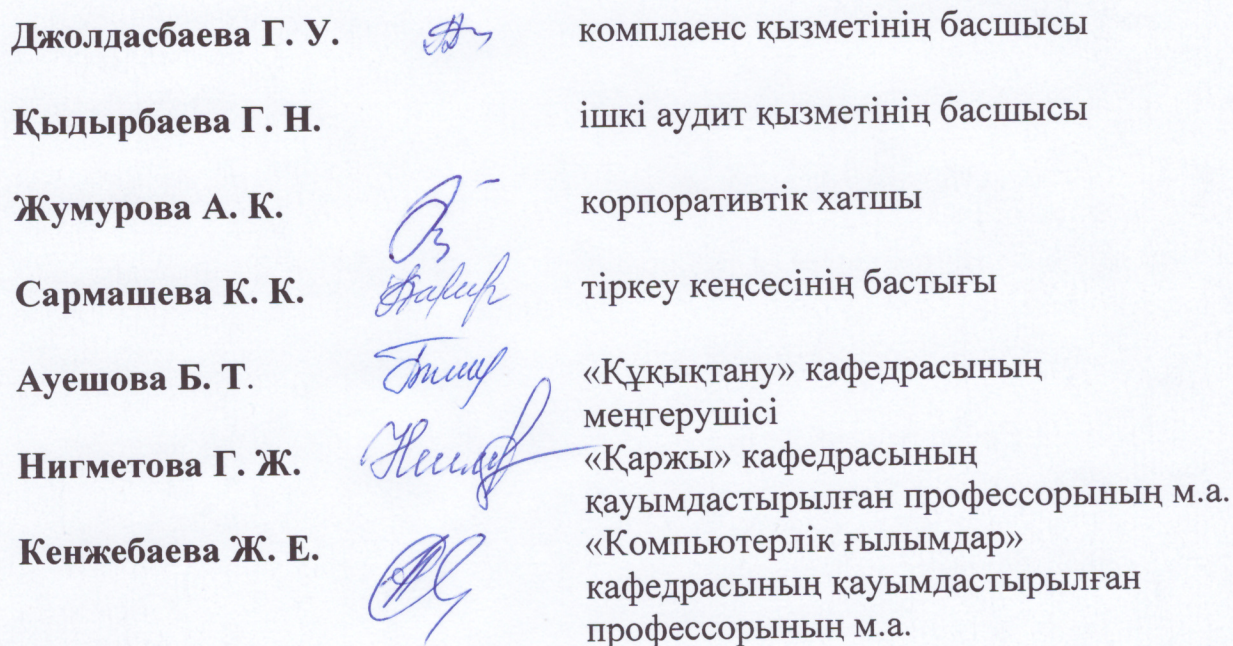 Джолдасбаева Г. У. комплаенс қызметінің басшысы
Қыдырбаева Г. Н. ішкі аудит қызметінің басшысы
Жумурова А. К. корпоративтік хатшы
Сармашева К. К. тіркеу кеңсесінің бастығы
Ауешова Б. Т. «Құқықтану» кафедрасының
меңгерушісі
Нигметова Г. Ж. «Қаржы» кафедрасының
қауымдастырылған профессорының м.а.
Кенжебаева Ж. Е. «Компьютерлік ғылымдар»
кафедрасының қауымдастырылған
профессорының м.а.